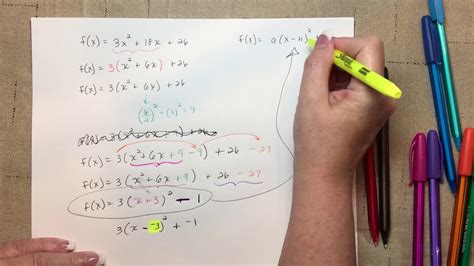 f(x) = 3x² + 18x + 26
f(x) = a(x-h)²
f(x) = 3(x² + 6x) + 26
f(x) = 3(x² + 6x ) + 26
(6/2)² → (3)² = 9
f(x) = 3(x² + 6x + 9 - 9) + 26 - 27
f(x) = 3(x² + 6x + 9) + 26 - 27
f(x) = 3(x + 3)² - 1
3(x - -3)² + -1